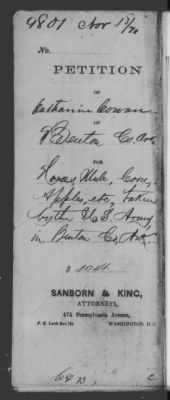 9801 Nov 15/70
No.
PETITION
OF
Catharine Cowan
OF
Benton Co, Ark
FOR
Horses Mule, Corn,
Apples, etc, taken
by the U.S. Army,
in Benton Co, Ark.
$ 1044.
SANBORN & KING,
ATTORNEYS,
475 Pennsylvania Avenue,
P. O. Lock Box WASHINGTON, D. C.